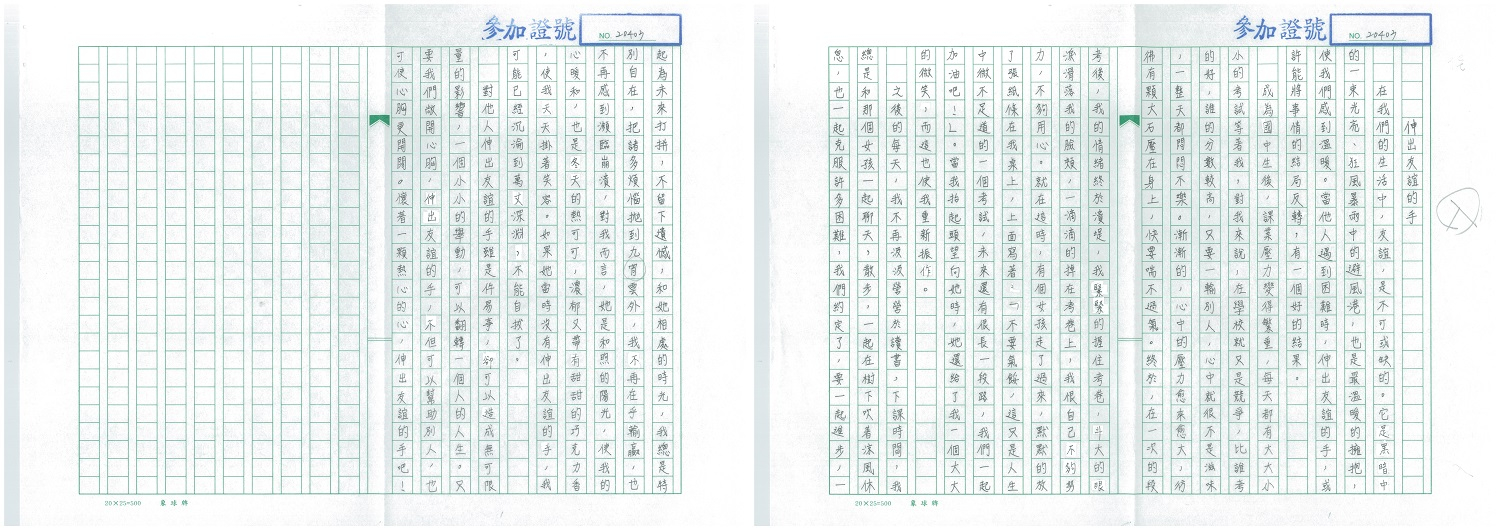 參加證號
NO. 20403
伸出友誼的手
在我們的生活中，友誼，是不可或缺的。它是黑暗中
的一束光亮，狂風暴雨中的避風港，也是最溫暖的擁抱，
使我們感到溫暖。當他人遇到困難時，伸出友誼的手，或
許能將事情的結局反轉，有一個好的結果。
成為國中生後，課業壓力變得繁重，每天都有大大小
小的考試等著我，對我來說，在學校就又是競爭，比誰考
的好，誰的分數較高，又要一輸別人，心中就很不是滋味
，一整天都悶悶不樂。漸漸的，心中的壓力愈來愈大，彷
彿有顆大石壓在身上，快要喘不過氣。終於，在一次的段
考後，我的情緒終於潰堤，我緊緊的握住考卷，斗大的眼
淚滑落我的臉頰，一滴滴的掉在考卷上，我恨自己不夠努
力，不夠用心。就在這時，有個女孩走了過來，默默的放
了張紙條在我桌上，上面寫著：「不要氣餒，這又是人生
中微不足道的一個考試，未來還有很長一段路，我們一起
加油吧！」。當我抬起頭望向她時，她還給了我一個大大
的微笑，而這也使我重新振作。
之後的每天，我不再汲汲營營於讀書，下課時間，我
總是和那個女孩一起聊天，散步，一起在樹下吹著涼風休
息，也一起克服許多困難，我們約定了，要一起進步，一
20×25=500 象球牌
參加證號
NO. 20403
起為未來打拼，不留下遺憾，和她相處的時光，我總是特
別自在，把諸多煩惱拋到九霄雲外，我不再在乎輸贏，也
不再感到瀕臨崩潰，對我而言，她是和煦的陽光，使我的
心暖和，也是冬天的熱可可，濃郁又帶有甜甜的巧克力香
，使我天天掛著笑容。如果她當時沒有伸出友誼的手，我
可能已經沉淪到萬丈深淵，不能自拔了。
對他人伸出友誼的手雖是件易事，卻可以造成無可限
量的影響，一個小小的舉動，可以翻轉一個人的人生。只
要我們敞開心胸，伸出友誼的手，不但可以幫助別人，也
可使心胸更開闊。懷著一顆熱心的心，伸出友誼的手吧！
20×25=500 象球牌